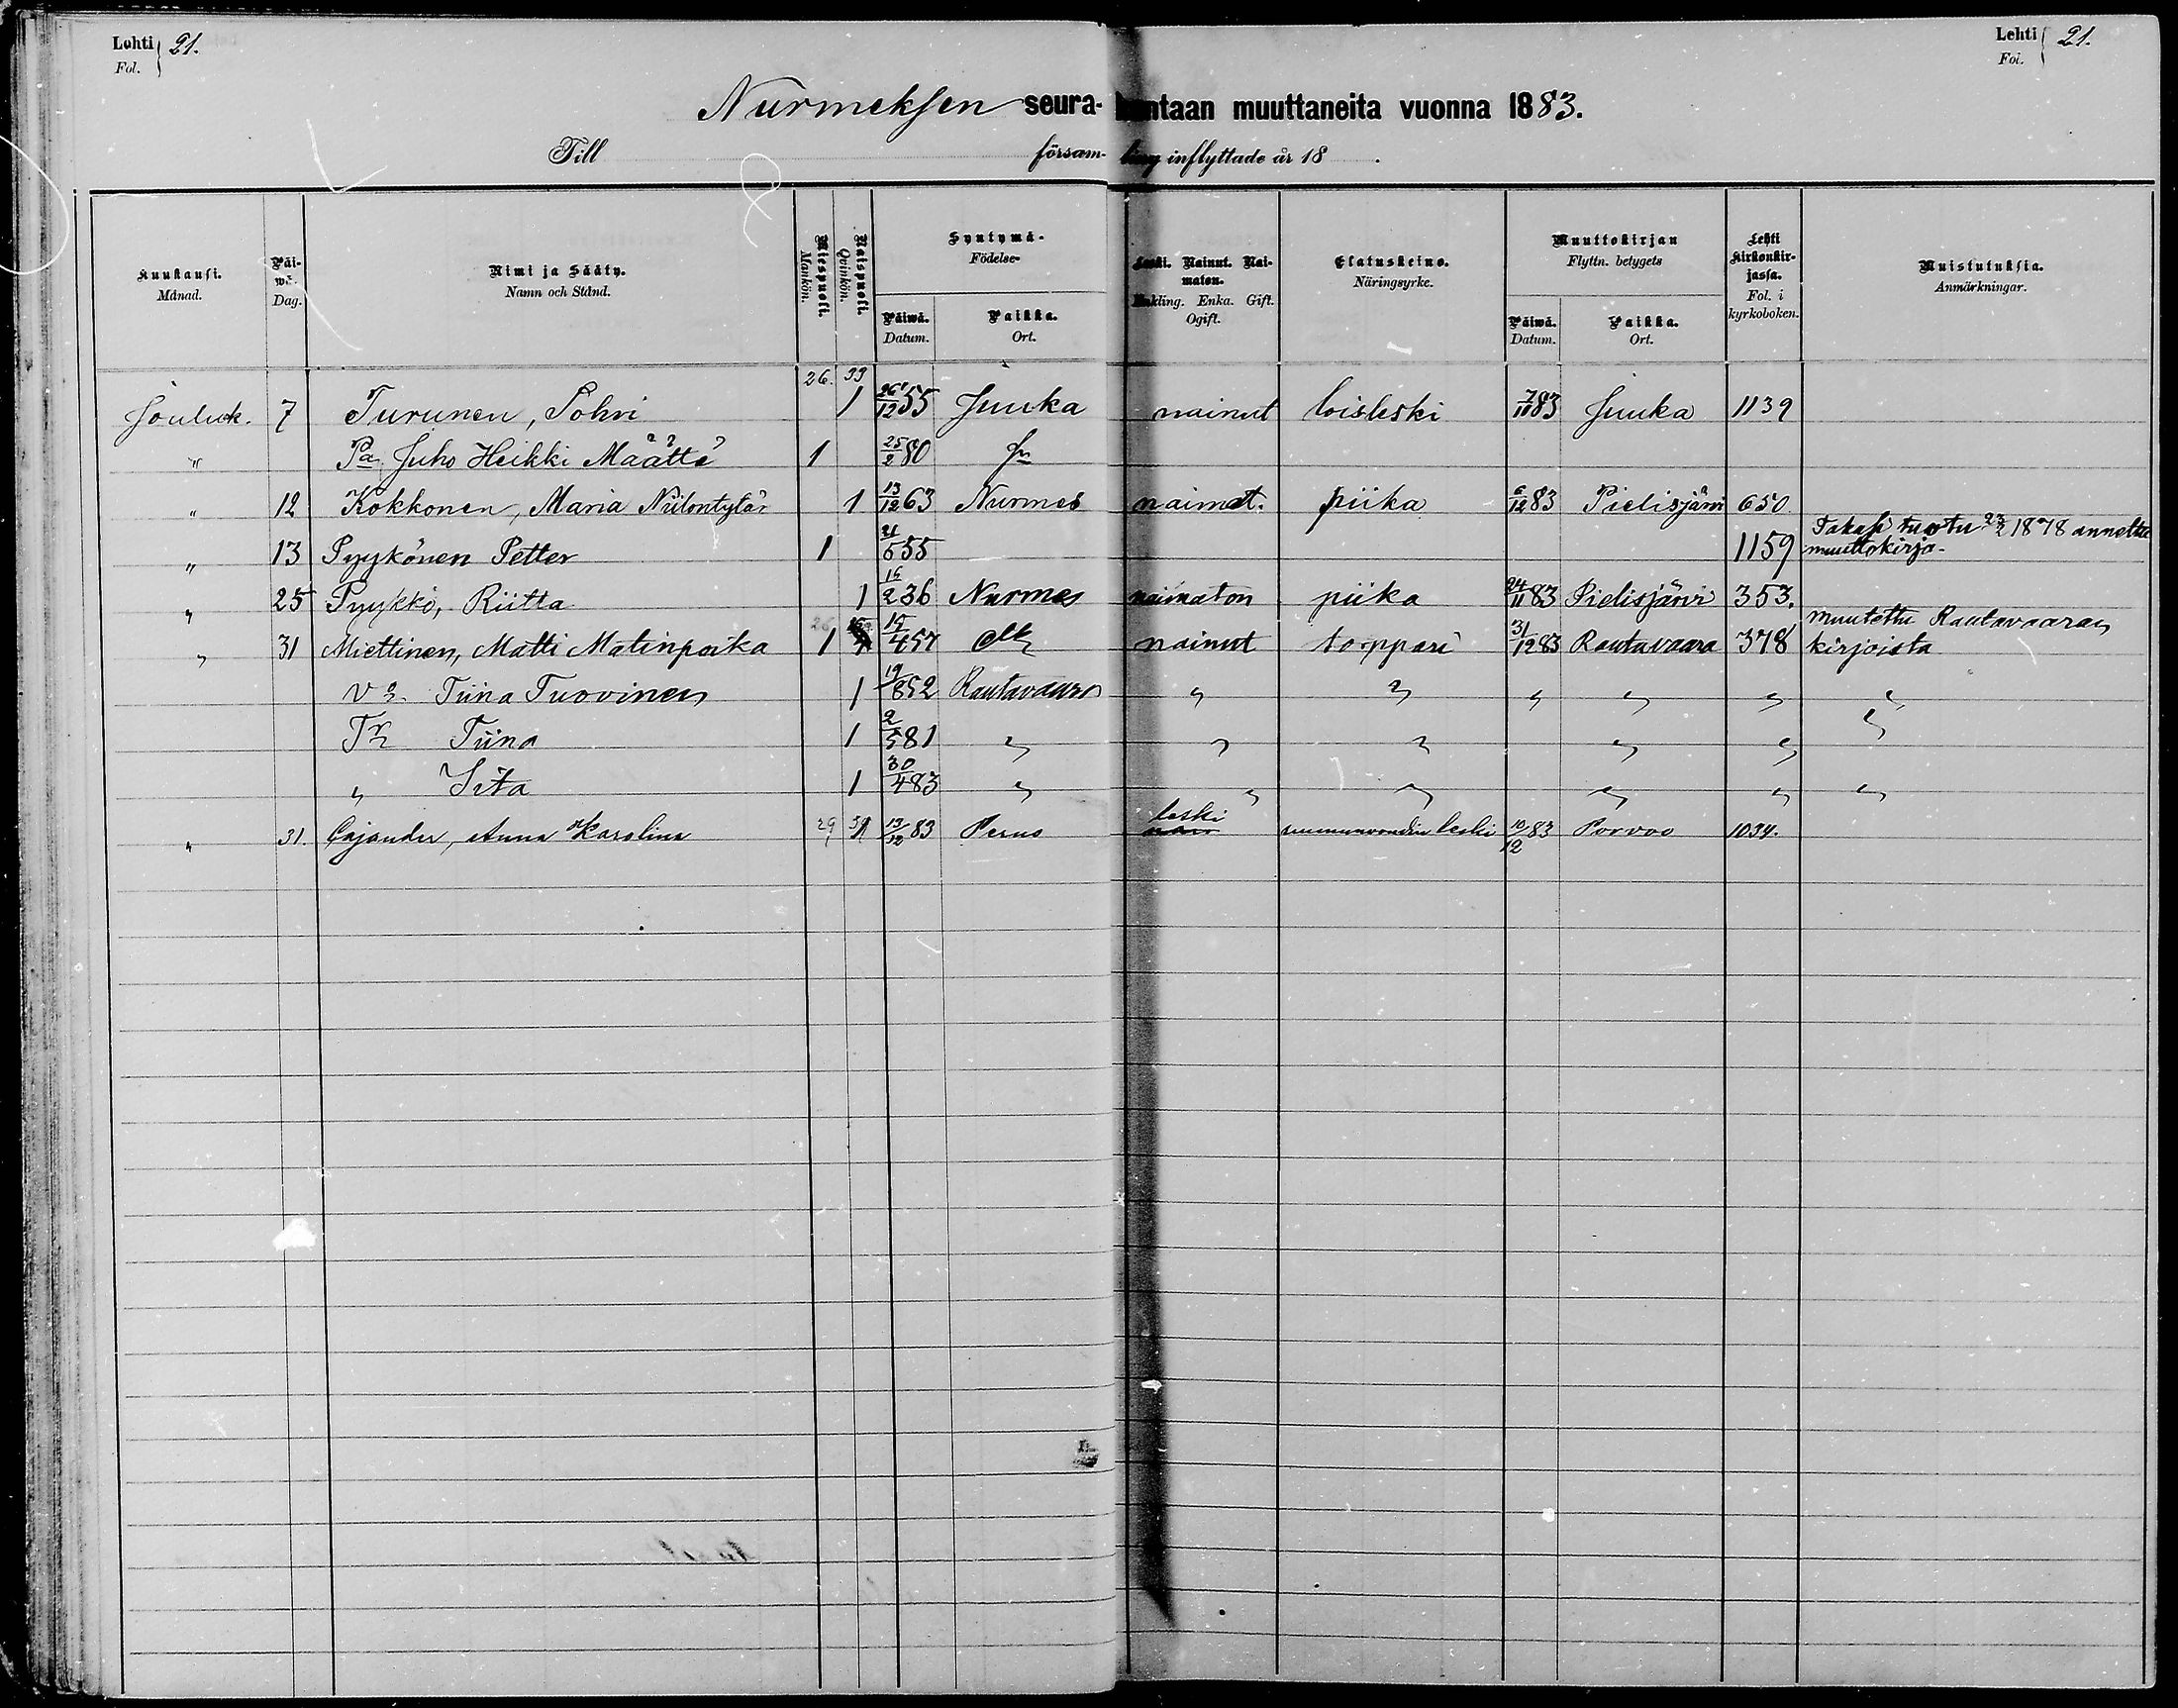 Lehti 21.
Fol.
Lehti 21.
Fol.
Nurmeksen seura-kuntaan muuttaneita vuonna 1883.
Till försam-ling inflyttade år 18 .
Kuukausi. Månad.
Päi-wä. Dag.
Nimi ja Sääty. Namn och Stånd.
Miespuoli. Mankön.
Naispuoli. Qvinkön.
Syntymä- Födelse-
Päiwä. Datum.
Paikka. Ort.
Leski. Nainut. Nai-maton. Enkling. Enka. Gift. Ogift.
Elatuskeino. Näringsyrke.
Muuttokirjan Flyttn. betygets
Päiwä. Datum.
Paikka. Ort.
Lehti Kirkonkir-jassa. Fol. i kyrkoboken.
Muistutuksia. Anmärkningar.
26. 33
Jouluk. 7 Turunen, Sohvi 1 26/12 55 Juuka nainut loisleski 7/11 83 Juuka 1139
" Pa Juho Heikki Määttä 1 25/2 80 Jn
" 12 Kokkonen, Maria Niilontytär 1 13/12 63 Nurmes naimat. piika 6/12 83 Pielisjärvi 650
" 13 Pyykönen Petter 1 21/5 55 1159 Takasi tuotu 23/2 1878 annettu muuttokirja.
" 25 Pyykkö, Riitta 1 16/2 36 Nurmes naimaton piika 24/11 83 Pielisjärvi 353.
" 31 Miettinen, Matti Matinpoika 26 1 15/4 57 nainut torppari 31/12 83 Rautavaara 378 muutettu Rautavaaran kirjoista
Vo. Tiina Tuovinen 1 19/8 52 Rautavaara " " " " " "
Tr Tiina 1 2/5 81 " " " " " "
" Iita 1 30/4 83 " " " " " "
" 31. Cajander, Anna Karolina 29 1 13/12 83 Perno leski leski 10/12 83 Porvoo 1034.